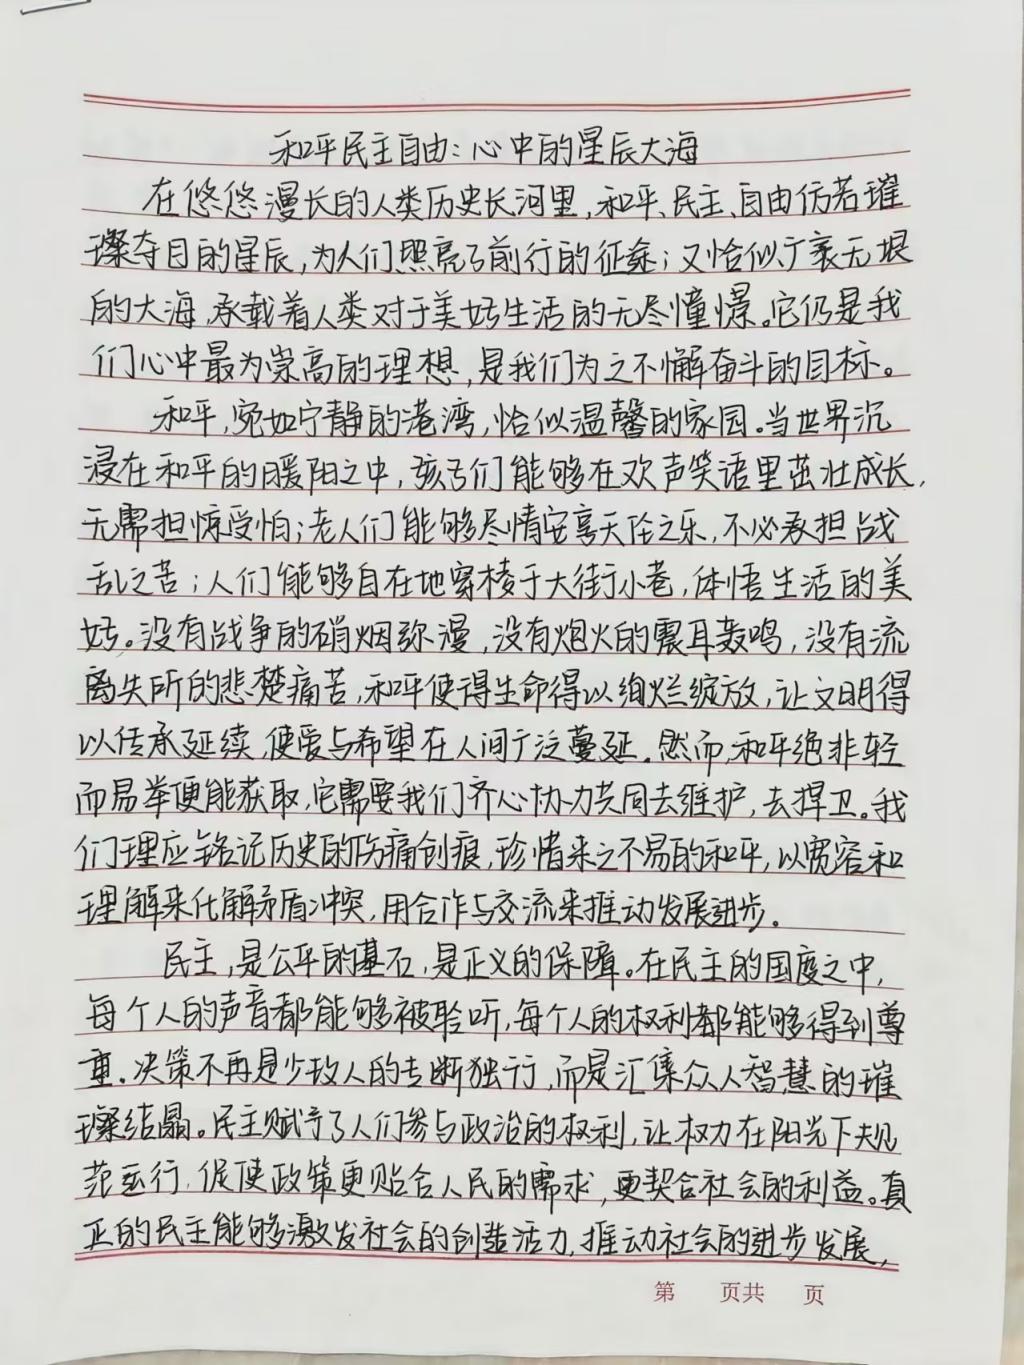 和平民主自由：心中的星辰大海
在悠悠漫长的人类历史长河里，和平、民主、自由仿若璀
璨夺目的星辰，为人们照亮了前行的征途；又恰似广袤无垠
的大海，承载着人类对于美好生活的无尽憧憬。它仍是我
们心中最为崇高的理想，是我们为之不懈奋斗的目标。
和平，宛如宁静的港湾，恰似温馨的家园。当世界沉
浸在和平的暖阳之中，孩子们能够在欢声笑语里茁壮成长，
无需担惊受怕；老人们能够尽情安享天伦之乐，不必承担战
乱之苦；人们能够自在地穿梭于大街小巷，体悟生活的美
好。没有战争的硝烟弥漫，没有炮火的震耳轰鸣，没有流
离失所的悲楚痛苦，和平使得生命得以绚烂绽放，让文明得
以传承延续，使爱与希望在人间广泛蔓延。然而，和平绝非轻
而易举便能获取，它需要我们齐心协力共同去维护，去捍卫。我
们理应铭记历史的伤痛创痕，珍惜来之不易的和平，以宽容和
理解来化解矛盾冲突，用合作与交流来推动发展进步。
民主，是公平的基石，是正义的保障。在民主的国度之中，
每个人的声音都能够被聆听，每个人的权利都能够得到尊
重。决策不再是少数人的专断独行，而是汇集众人智慧的璀
璨结晶。民主赋予了人们参与政治的权利，让权力在阳光下规
范运行，促使政策更贴合人民的需求，更契合社会的利益。真
正的民主能够激发社会的创造活力，推动社会的进步发展，
第 页共 页